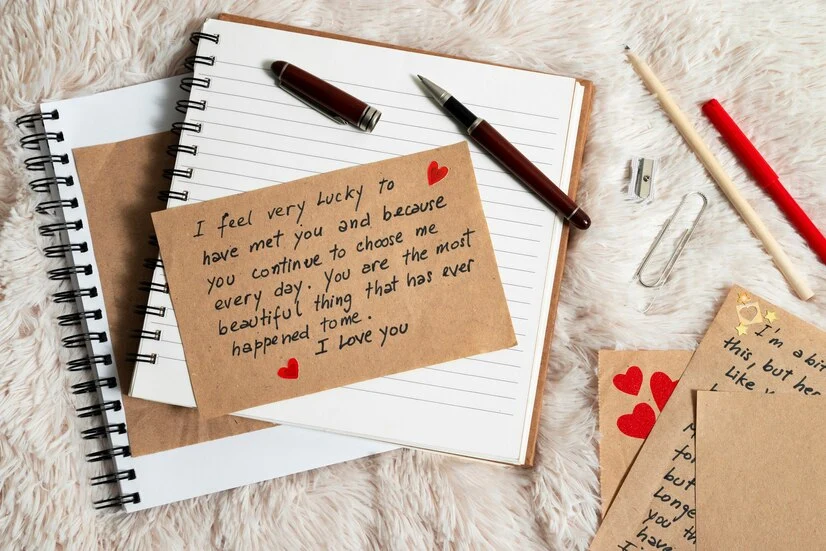 I feel very Lucky to
have met you and because
you continue to choose me
every day. You are the most
beautiful thing that has ever
happened to me.
I Love you
I'm a bit
this, but her
Like
but
Longe
you th
have